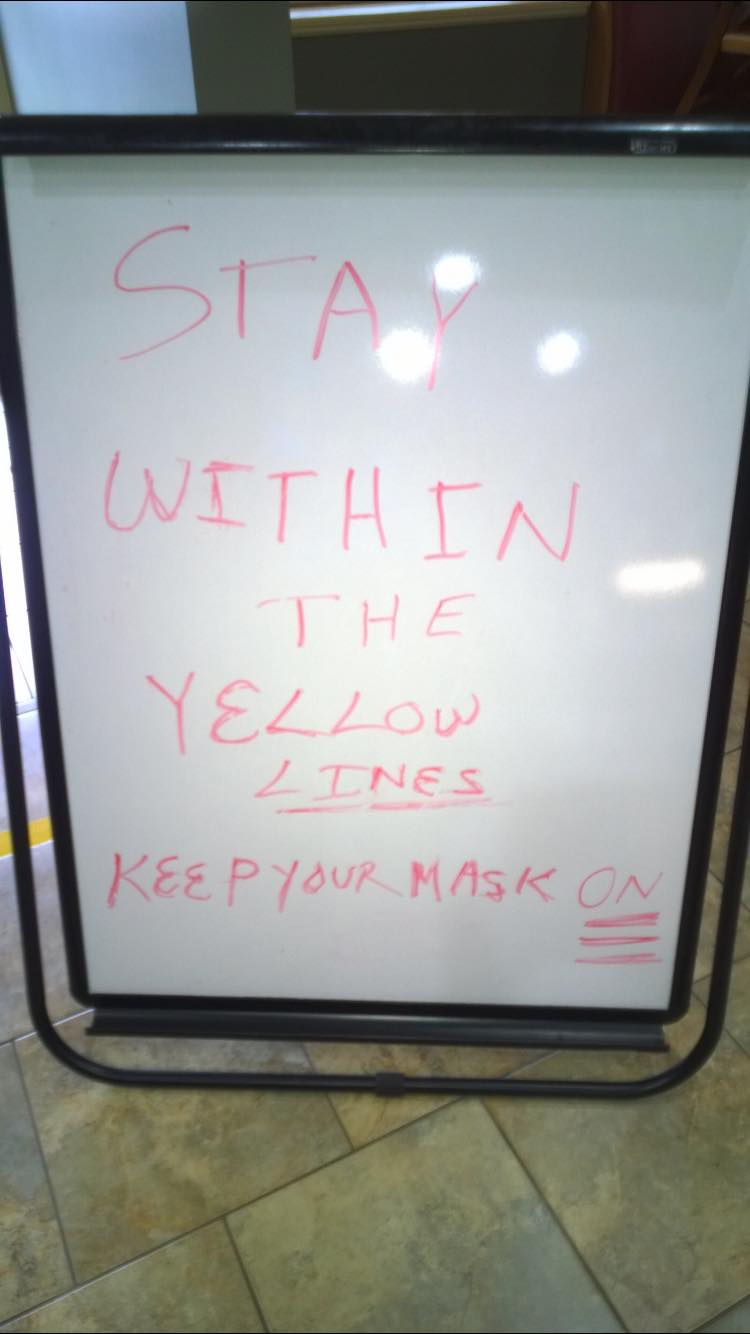 STAY
WITHIN
THE
YELLOW
LINES
KEEP YOUR MASK ON